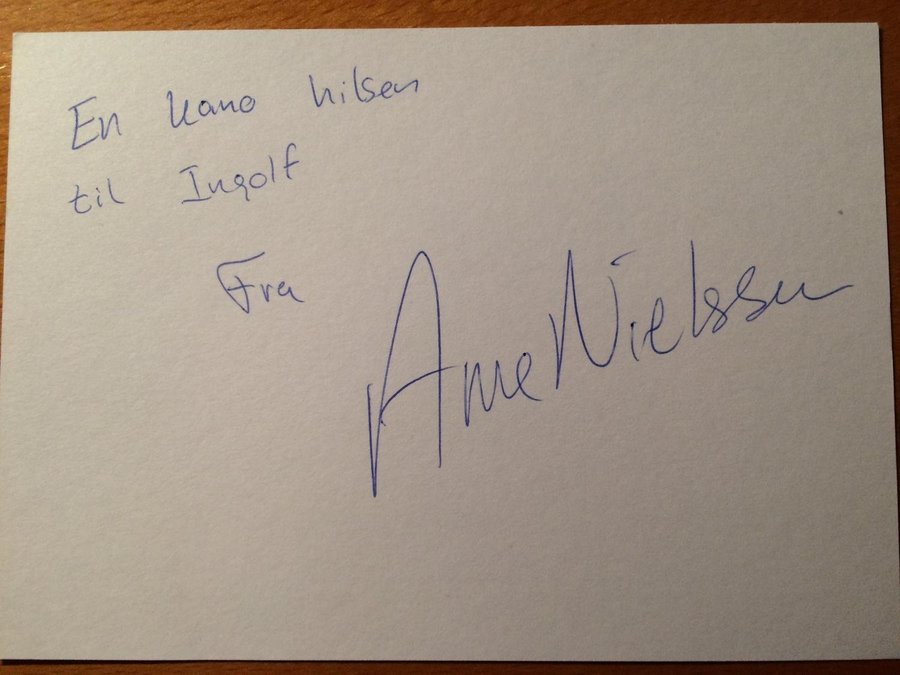 En kano hilsen
til Ingolf
Fra Arne Nielsson